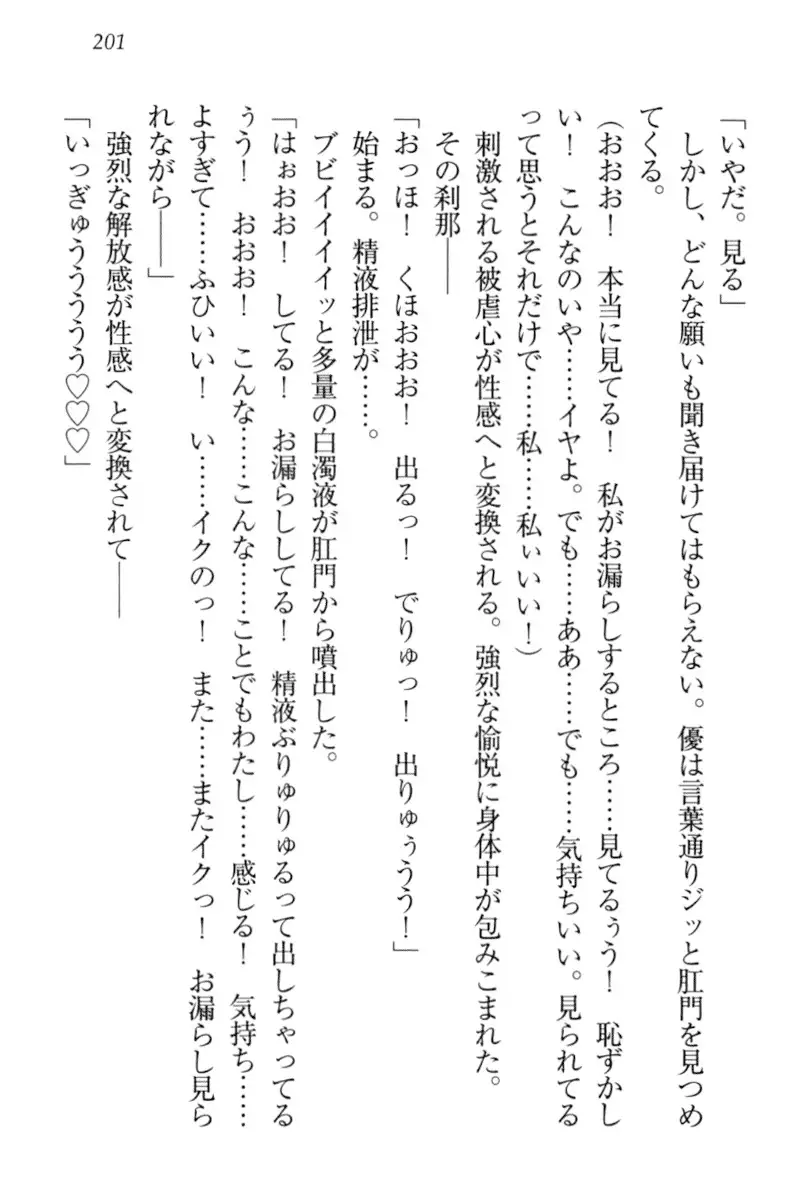 201
「いやだ。見る」
　しかし、どんな願いも聞き届けてはもらえない。優は言葉通りジッと肛門を見つめ
てくる。
（おおお！　本当に見てる！　私がお漏らしするところ……見てるぅう！　恥ずかし
い！　こんなのいや……イヤよ。でも……ああ……でも……気持ちいい。見られてる
って思うとそれだけで……私……私ぃいい！）
　刺激される被虐心が性感へと変換される。強烈な愉悦に身体中が包みこまれた。
　その刹那――
「おっほ！　くほおおお！　出るっ！　でりゅっ！　出りゅぅうう！」
　始まる。精液排泄が……。
　ブビイイイイッと多量の白濁液が肛門から噴出した。
「はぉおお！　してる！　お漏らししてる！　精液ぶりゅりゅるって出しちゃってる
ぅう！　おおお！　こんな……こんな……ことでもわたし……感じる！　気持ち……
よすぎて……ふひいい！　い……イクのっ！　また……またイクっ！　お漏らし見ら
れながら――」
　強烈な解放感が性感へと変換されて――
「いっぎゅううううう♡♡♡」